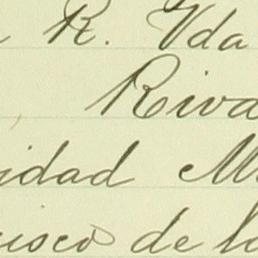 R. Vda
Riva
idad M
isco de l